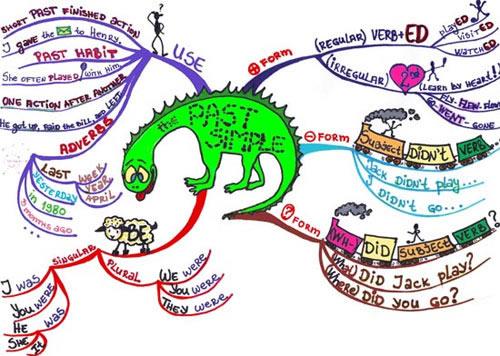 the PAST SIMPLE
USE
SHORT PAST FINISHED ACTION
I gave the to Henry.
PAST HABIT
She OFTEN PLAYED with him.
ONE ACTION AFTER ANOTHER
He got up, paid the bill, and LEFT
ADVERBS
LAST WEEK
YEAR
APRIL
YESTERDAY
in 1980
months ago
...
+ FORM
(REGULAR) VERB+ED
playED
visitED
watchED
(IRREGULAR) 2nd (LEARN by HEART!)
FLY-FLEW-
GO-WENT-GONE
- FORM
Subject DIDN'T VERB
Jack DIDN'T play...
I DIDN'T GO...
? FORM
(WH-) DID SUBJECT VERB ?
(When) DID Jack play?
(Where) DID you go?
BE
SINGULAR
I was
You were
He was
She
It
PLURAL
We were
You were
They were